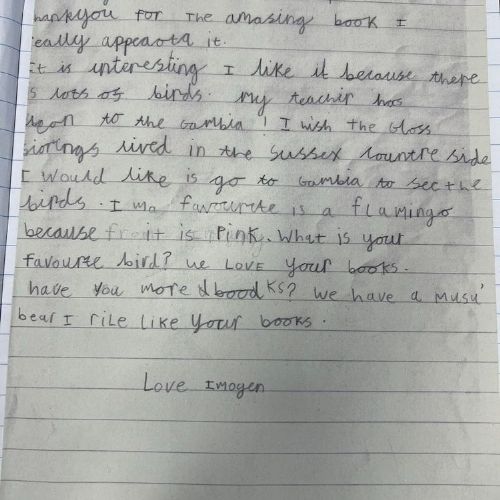 hankyou for The amasing book I
eally appeaota it.
It is interesting I like it because there
s lots of birds. My teachir has
to the Gambia! I wish the Gloss
lived in the Sussex countre side
I would like is go to Gambia to see the
birds. I ma favourite is a flamingo
because it is Pink. What is your
favourte bird? we Love your books.
have you more books? We have a musu'
bear I rile like your books.
Love Imogen